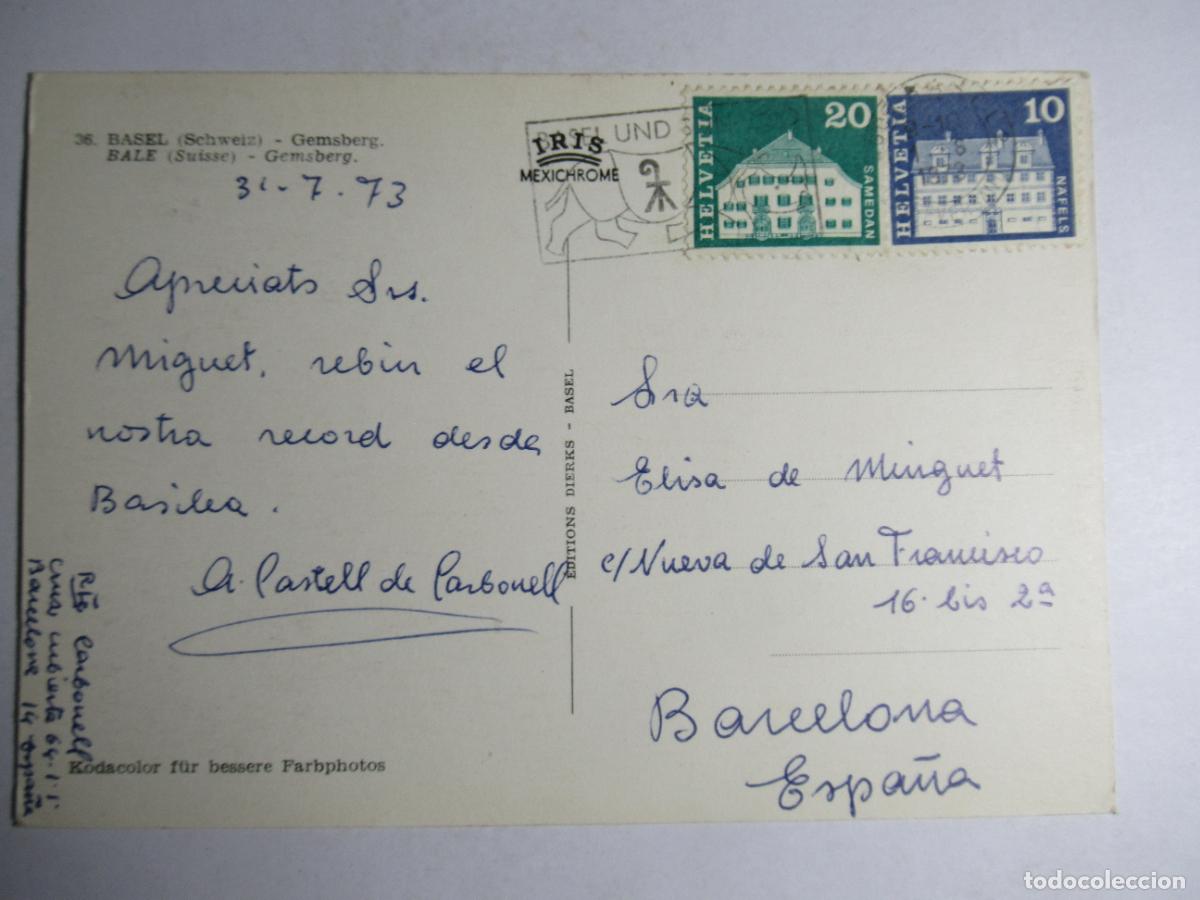 36. BASEL (Schweiz) - Gemsberg.
BALE (Suisse) - Gemsberg.
31-7-73
Apreciats Srs.
Minguet, rebin el
nostra record desde
Basilea.
A. Castell de Carbonell
Rte Carbonell
Cruz cubierta 64-1-1
Barcelona 14 España
Kodacolor für bessere Farbphotos
EDITIONS DIERKS - BASEL
BASEL UND
IRIS
MEXICHROME
HELVETIA
20
SAMEDAN
HELVETIA
10
NÄFELS
Sra
Elisa de Minguet
c/ Nueva de San Francisco
16. bis 2ª
Barcelona
España
todocoleccion